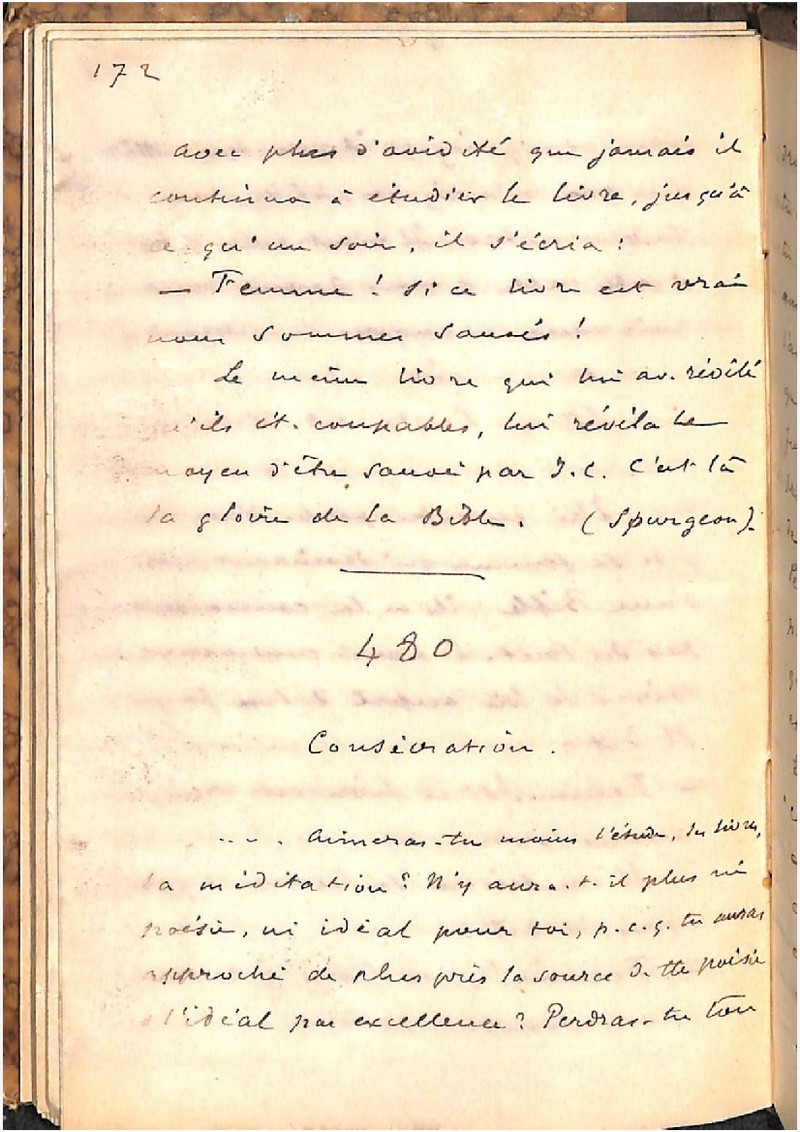 172
avec plus d'avidité que jamais il
continua à étudier le livre, jusqu'à
ce qu'un soir, il s'écria :
— Femme ! Si ce livre est vrai
nous sommes sauvés !
Le même livre qui lui av. révélé
qu'ils ét. coupables, lui révéla le
moyen d'être sauvé par J.C. C'est là
la gloire de la Bible. (Spurgeon).
480
Consécration.
.... Aimeras-tu moins l'étude, les livres,
la méditation ? N'y aura-t-il plus ni
poésie, ni idéal pour toi, p.c.q. tu auras
approché de plus près la source d. tte poésie
l'idéal par excellence ? Perdras-tu ton